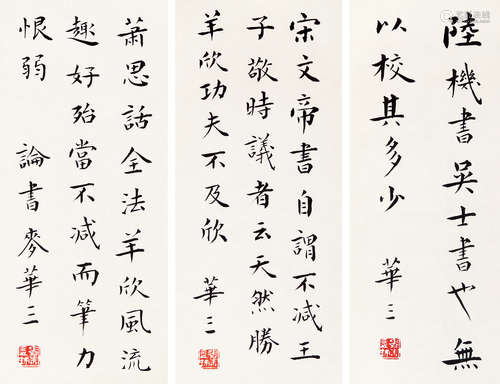 陸機書吳士書也無
以校其多少
華三
宋文帝書自謂不減王
子敬時議者云天然勝
羊欣功夫不及欣
華三
蕭思話全法羊欣風流
趣好殆當不減而筆力
恨弱
論書麥華三